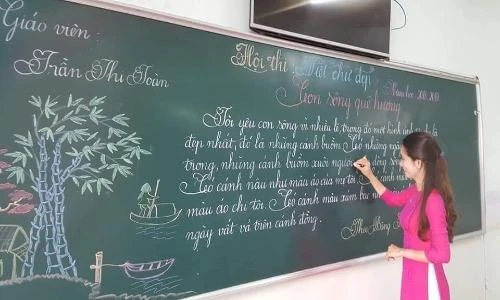 Giáo viên:
Trần Thị Toàn
Hội thi: Viết chữ đẹp
Năm học: 2018-2019
Con sông quê hương
Tôi yêu con sông vì nhiều lẽ, trong đó một hình ảnh là
đẹp nhất, đó là những cánh buồm. Có những
trong, những cánh buồm xuôi ngược dòng sông
Có cánh nâu như màu áo của mẹ tôi. Có cánh
màu áo chị tôi. Có cánh màu xám bạc
ngày vất vả trên cánh đồng.